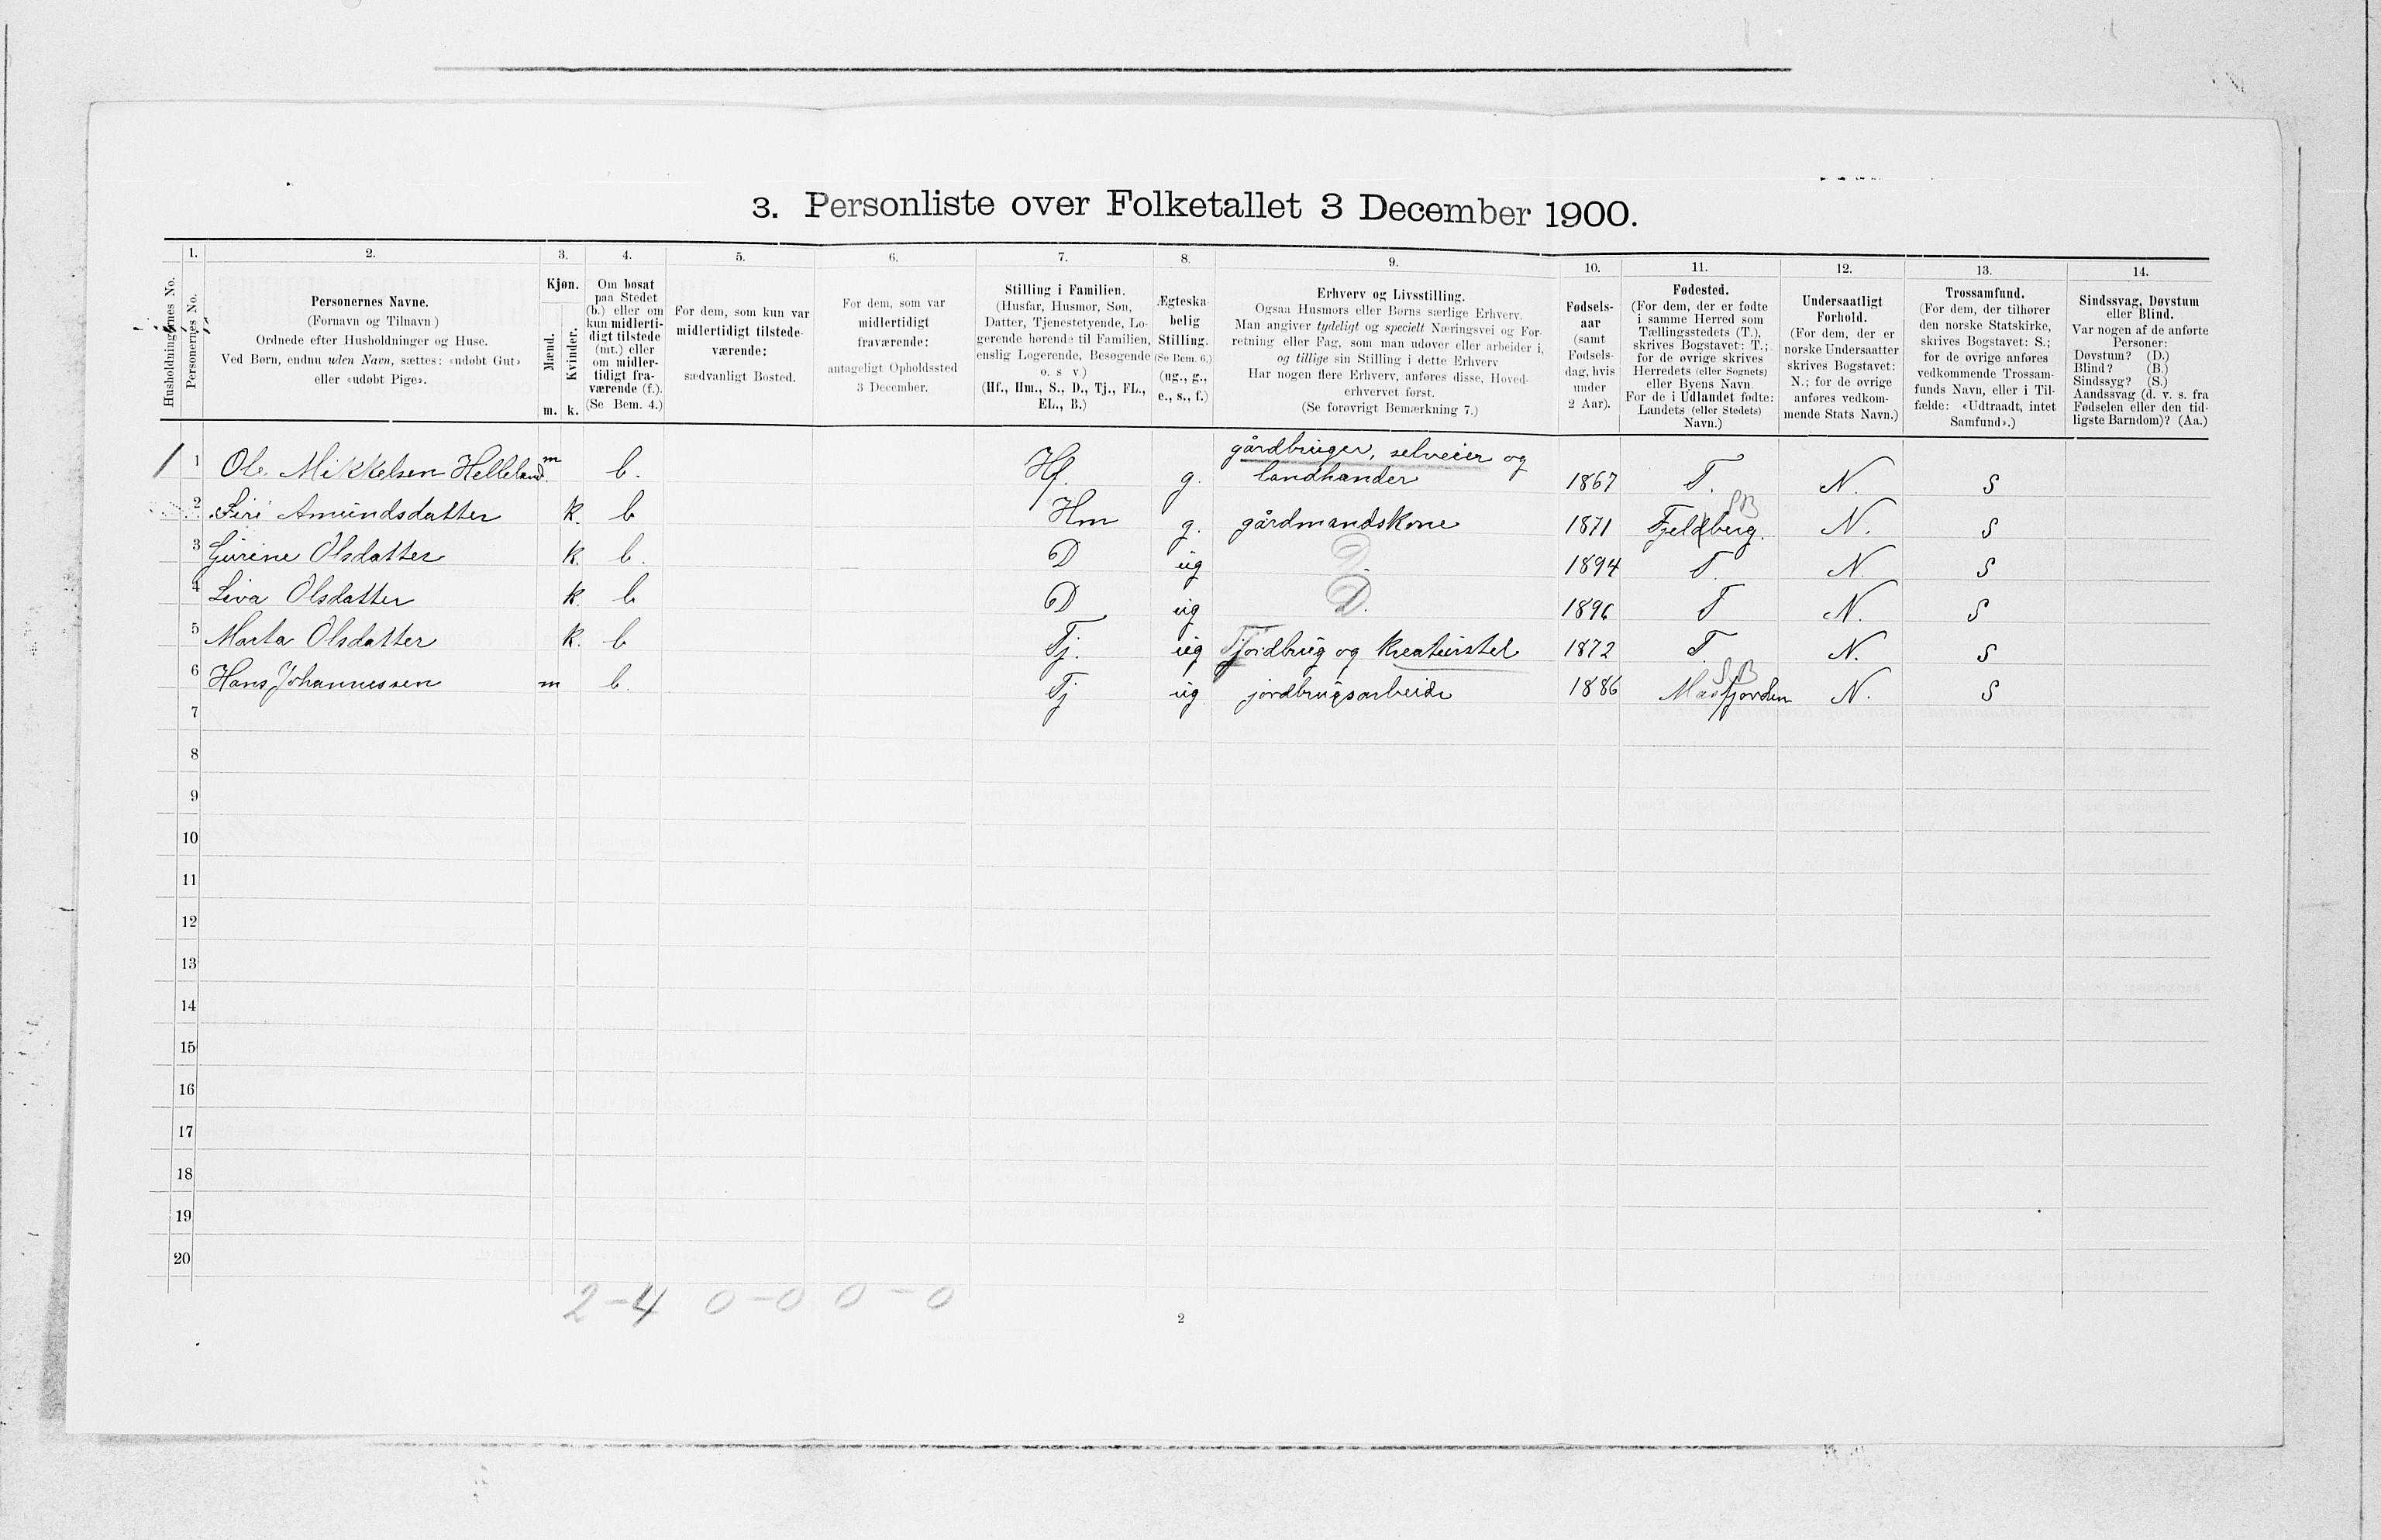 3. Personliste over Folketallet 3 December 1900.
Husholdningernes No.
1.
Personernes No.
2.
Personernes Navne.
(Fornavn og Tilnavn)
Ordnede efter Husholdninger og Huse.
Ved Børn, endnu uden Navn, sættes: «udøbt Gut»
eller «udøbt Pige».
3.
Kjøn.
Mænd.
Kvinder.
m. k.
4.
Om bosat
paa Stedet
(b.) eller om
kun midlerti-
digt tilstede
(mt.) eller
om midler-
tidigt fra-
værende (f.).
(Se Bem. 4.)
5.
For dem, som kun var
midlertidigt tilstede-
værende:
sædvanligt Bosted.
6.
For dem, som var
midlertidigt
fraværende:
antageligt Opholdssted
3 December.
7.
Stilling i Familien.
(Husfar, Husmor, Søn,
Datter, Tjenestetyende, Lo-
gerende hørende til Familien,
enslig Logerende, Besøgende
o. s v)
(Hf., Hm., S., D., Tj., FL.,
EL., B.)
8.
Ægteska-
belig
Stilling.
(Se Bem. 6.)
(ug., g.,
e., s., f.)
9.
Erhverv og Livsstilling.
Ogsaa Husmors eller Børns særlige Erhverv.
Man angiver tydeligt og specielt Næringsvei og For-
retning eller Fag, som man udøver eller arbeider i,
og tillige sin Stilling i dette Erhverv.
Har nogen flere Erhverv, anføres disse, Hoved-
erhvervet først.
(Se forøvrigt Bemærkning 7.)
10.
Fødsels-
aar
(samt
Fødsels-
dag, hvis
under
2 Aar).
11.
Fødested.
(For dem, der er fødte
i samme Herred som
Tællingsstedets (T.),
skrives Bogstavet: T.;
for de øvrige skrives
Herredets (eller Sognets)
eller Byens Navn.
For de i Udlandet fødte:
Landets (eller Stedets)
Navn.)
12.
Undersaatligt
Forhold.
(For dem, der er
norske Undersaatter
skrives Bogstavet:
N.; for de øvrige
anføres vedkom-
mende Stats Navn.)
13.
Trossamfund.
(For dem, der tilhører
den norske Statskirke,
skrives Bogstavet: S.;
for de øvrige anføres
vedkommende Trossam-
funds Navn, eller i Til-
fælde: «Udtraadt, intet
Samfund».)
14.
Sindssvag, Døvstum
eller Blind.
Var nogen af de anførte
Personer:
Døvstum? (D.)
Blind? (B.)
Sindssyg? (S.)
Aandssvag (d. v. s. fra
Fødselen eller den tid-
ligste Barndom)? (Aa.)
1 1 Ole Mikkelsen Helleland m b. Hf. g. gårdbruger, selveier og landhander 1867 T. N. S
2 Siri Amundsdatter k. b Hm g. gårdmandskone 1871 Fjeldberg. SB N. S
3 Gurine Olsdatter k. b. D ug D 1894 T. N. S
4 Liva Olsdatter k. b D ug D. 1896 T N. S
5 Marta Olsdatter k. b Tj. ug Tj jordbrug og kreaturstel 1872 T. N. S
6 Hans Johannessen m b. Tj ug jordbrugsarbeide 1886 Masfjorden SB N. S
7
8
9
10
11
12
13
14
15
16
17
18
19
20
2-4 0-0 0-0
2